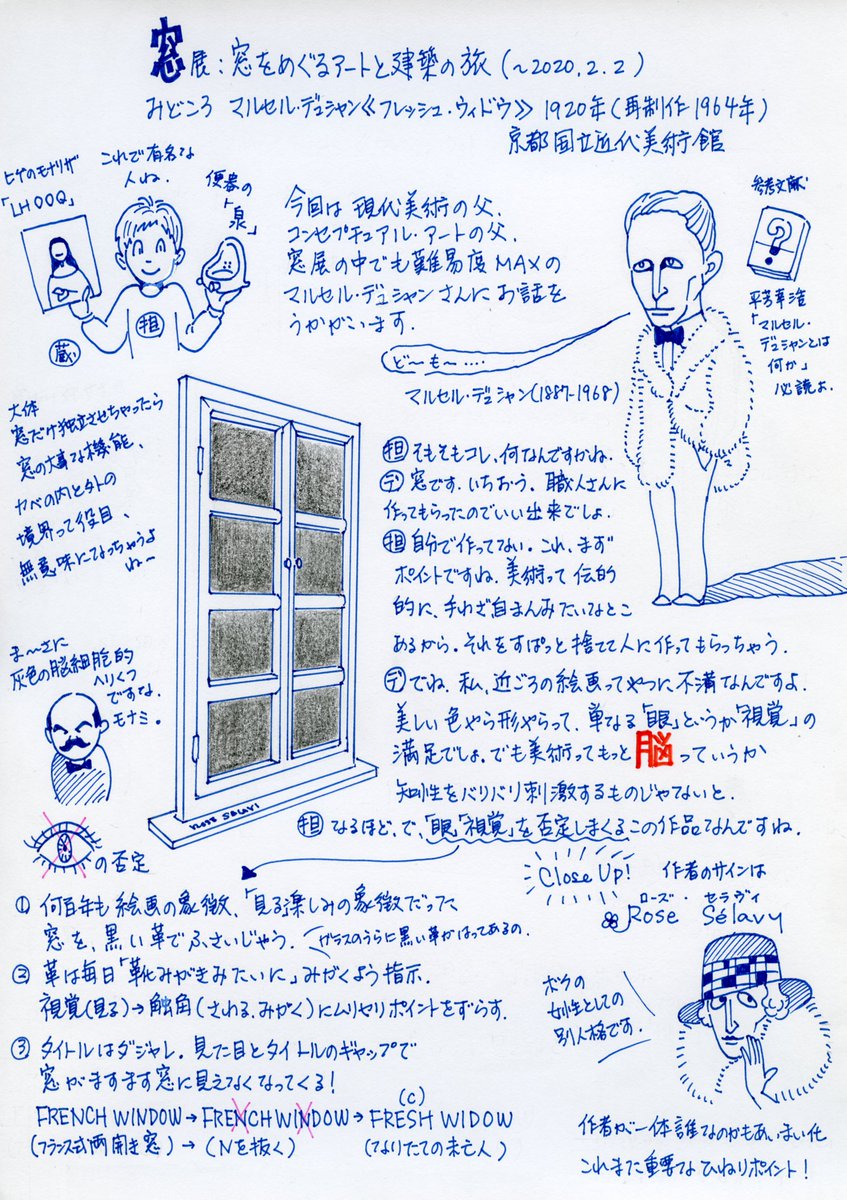 窓展:窓をめぐるアートと建築の旅(~2020.2.2)
みどころ マルセル・デュシャン《フレッシュ・ウィドウ》1920年(再制作1964年)
京都国立近代美術館
ヒゲのモナリザ
「LHOOQ」
これで有名な
人ね.
便器の
「泉」
蔵
担
今回は 現代美術の父.
コンセプチュアル・アートの父.
窓展の中でも難易度MAXの
マルセル・デュシャンさんにお話を
うかがいます.
ど〜も〜‥‥
マルセル・デュシャン(1887-1968)
参考文献
?
平芳幸浩
「マルセル・
デュシャンとは
何か」
必読よ.
大体
窓だけ独立させちゃったら
窓の大事な機能、
カベの内と外の
境界って役目、
無意味になっちゃうよ
ね〜
担 そもそもコレ、何なんですかね.
デ 窓です.いちおう. 職人さんに
作ってもらったのでいい出来でしょ.
担 自分で作ってない. これ、まず
ポイントですね. 美術って 伝的
的に、手わざ自まんみたいなとこ
あるから. それをすぱっと捨てて人に作ってもらっちゃう.
デ でね. 私、近ごろの絵画ってやつに不満なんですよ.
美しい色やら形やらって、単なる「眼」というか「視覚」の
満足でしょ. でも美術ってもっと脳っていうか
知性をバリバリ刺激するものじゃないと.
担 なるほど. で、「眼」「視覚」を否定しまくるこの作品なんですね.
ま〜さに
灰色の脳細胞的
ヘリくつ
ですな.
モナミ.
ROSE SELAVY
の否定
① 何百年も絵画の象徴、「見る」楽しみの象徴だった
窓を、黒い革でふさいじゃう.
ガラスのうらに黒い革がはってあるの.
② 革は毎日「靴みがきみたいに」みがくよう指示.
視覚(見る)→触角(さわる、みがく)にムリヤリポイントをずらす.
③ タイトルはダジャレ. 見た目とタイトルのギャップで
窓がますます窓に見えなくなってくる!
(C)
FRENCH WINDOW→FRENCH WINDOW→FRESH WIDOW
(フランス式両開き窓)→(Nを抜く) (なりたての未亡人)
Close Up!
作者のサインは
ローズ・セラヴィ
Rose Sélavy
ボクの
女性としての
別人格です.
作者が一体誰なのかもあいまい化
これまた重要なひねりポイント!